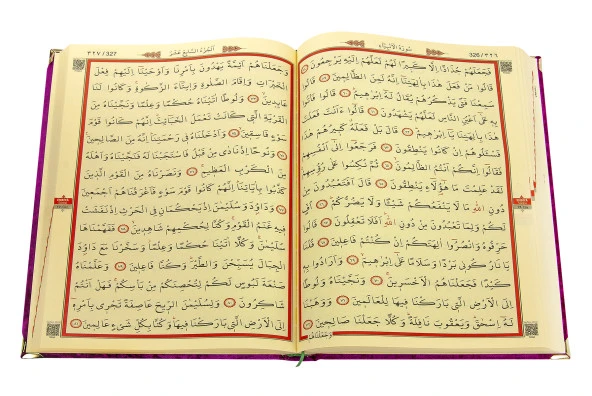 سُورَةُ الْاَنْبِيَاءِ 326/٣٢٦
فَجَعَلَهُمْ جُذَاذًا اِلَّا كَبٖيرًا لَهُمْ لَعَلَّهُمْ اِلَيْهِ يَرْجِعُونَ ٥٨
قَالُوا مَنْ فَعَلَ هٰذَا بِاٰلِهَتِنَٓا اِنَّهُ لَمِنَ الظَّالِمٖينَ ٥٩ قَالُوا
سَمِعْنَا فَتًى يَذْكُرُهُمْ يُقَالُ لَهُٓ اِبْرٰهٖيمُ ٦٠ قَالُوا فَأْتُوا
بِهٖ عَلٰٓى اَعْيُنِ النَّاسِ لَعَلَّهُمْ يَشْهَدُونَ ٦١ قَالُٓوا ءَاَنْتَ فَعَلْتَ
هٰذَا بِاٰلِهَتِنَا يَٓا اِبْرٰهٖيمُ ٦٢ قَالَ بَلْ فَعَلَهُ كَبٖيرُهُمْ هٰذَا
فَسْـَٔلُوهُمْ اِنْ كَانُوا يَنْطِقُونَ ٦٣ فَرَجَعُٓوا اِلٰٓى اَنْفُسِهِمْ
فَقَالُٓوا اِنَّكُمْ اَنْتُمُ الظَّالِمُونَ ٦٤ ثُمَّ نُكِسُوا عَلٰى رُؤُسِهِمْ
لَقَدْ عَلِمْتَ مَا هٰٓؤُلَٓاءِ يَنْطِقُونَ ٦٥ قَالَ اَفَتَعْبُدُونَ مِنْ
دُونِ اللّٰهِ مَا لَا يَنْفَعُكُمْ شَيْـًٔا وَلَا يَضُرُّكُمْ ٦٦ اُفٍّ
لَكُمْ وَلِمَا تَعْبُدُونَ مِنْ دُونِ اللّٰهِ اَفَلَا تَعْقِلُونَ ٦٧ قَالُوا
حَرِّقُوهُ وَانْصُرُٓوا اٰلِهَتَكُمْ اِنْ كُنْتُمْ فَاعِلٖينَ ٦٨ قُلْنَا
يَا نَارُ كُونٖي بَرْدًا وَسَلَامًا عَلٰٓى اِبْرٰهٖيمَ ٦٩ وَاَرَادُوا بِهٖ
كَيْدًا فَجَعَلْنَاهُمُ الْاَخْسَرٖينَ ٧٠ وَنَجَّيْنَاهُ وَلُوطًا
اِلَى الْاَرْضِ الَّتٖي بَارَكْنَا فٖيهَا لِلْعَالَمٖينَ ٧١ وَوَهَبْنَا
لَهُٓ اِسْحٰقَ وَيَعْقُوبَ نَافِلَةً وَكُلًّا جَعَلْنَا صَالِحٖينَ ٧٢
وَجَعَلْنَاهُمْ
اَلْجُزْءُ السَّابِعَ عَشَرَ 327/٣٢٧
وَجَعَلْنَاهُمْ اَئِمَّةً يَهْدُونَ بِاَمْرِنَا وَاَوْحَيْنَٓا اِلَيْهِمْ فِعْلَ
الْخَيْرَاتِ وَاِقَامَ الصَّلٰوةِ وَاٖيتَٓاءَ الزَّكٰوةِ وَكَانُوا لَنَا
عَابِدٖينَ ٧٣ وَلُوطًا اٰتَيْنَاهُ حُكْمًا وَعِلْمًا وَنَجَّيْنَاهُ مِنَ
الْقَرْيَةِ الَّتٖي كَانَتْ تَعْمَلُ الْخَبَٓائِثَ اِنَّهُمْ كَانُوا قَوْمَ
سَوْءٍ فَاسِقٖينَ ٧٤ وَاَدْخَلْنَاهُ فٖي رَحْمَتِنَا اِنَّهُ مِنَ الصَّالِحٖينَ
٧٥ وَنُوحًا اِذْ نَادٰى مِنْ قَبْلُ فَاسْتَجَبْنَا لَهُ فَنَجَّيْنَاهُ وَاَهْلَهُ
مِنَ الْكَرْبِ الْعَظٖيمِ ٧٦ وَنَصَرْنَاهُ مِنَ الْقَوْمِ الَّذٖينَ
كَذَّبُوا بِاٰيَاتِنَا اِنَّهُمْ كَانُوا قَوْمَ سَوْءٍ فَاَغْرَقْنَاهُمْ اَجْمَعٖينَ
٧٧ وَدَاوُدَ وَسُلَيْمٰنَ اِذْ يَحْكُمَانِ فِي الْحَرْثِ اِذْ نَفَشَتْ
فٖيهِ غَنَمُ الْقَوْمِ وَكُنَّا لِحُكْمِهِمْ شَاهِدٖينَ ٧٨ فَفَهَّمْنَاهَا
سُلَيْمٰنَ وَكُلًّا اٰتَيْنَا حُكْمًا وَعِلْمًا وَسَخَّرْنَا مَعَ دَاوُدَ
الْجِبَالَ يُسَبِّحْنَ وَالطَّيْرَ وَكُنَّا فَاعِلٖينَ ٧٩ وَعَلَّمْنَاهُ
صَنْعَةَ لَبُوسٍ لَكُمْ لِتُحْصِنَكُمْ مِنْ بَأْسِكُمْ فَهَلْ اَنْتُمْ
شَاكِرُونَ ٨٠ وَلِسُلَيْمٰنَ الرّٖيحَ عَاصِفَةً تَجْرٖي بِاَمْرِهٖٓ
اِلَى الْاَرْضِ الَّتٖي بَارَكْنَا فٖيهَا وَكُنَّا بِكُلِّ شَيْءٍ عَالِمٖينَ ٨١